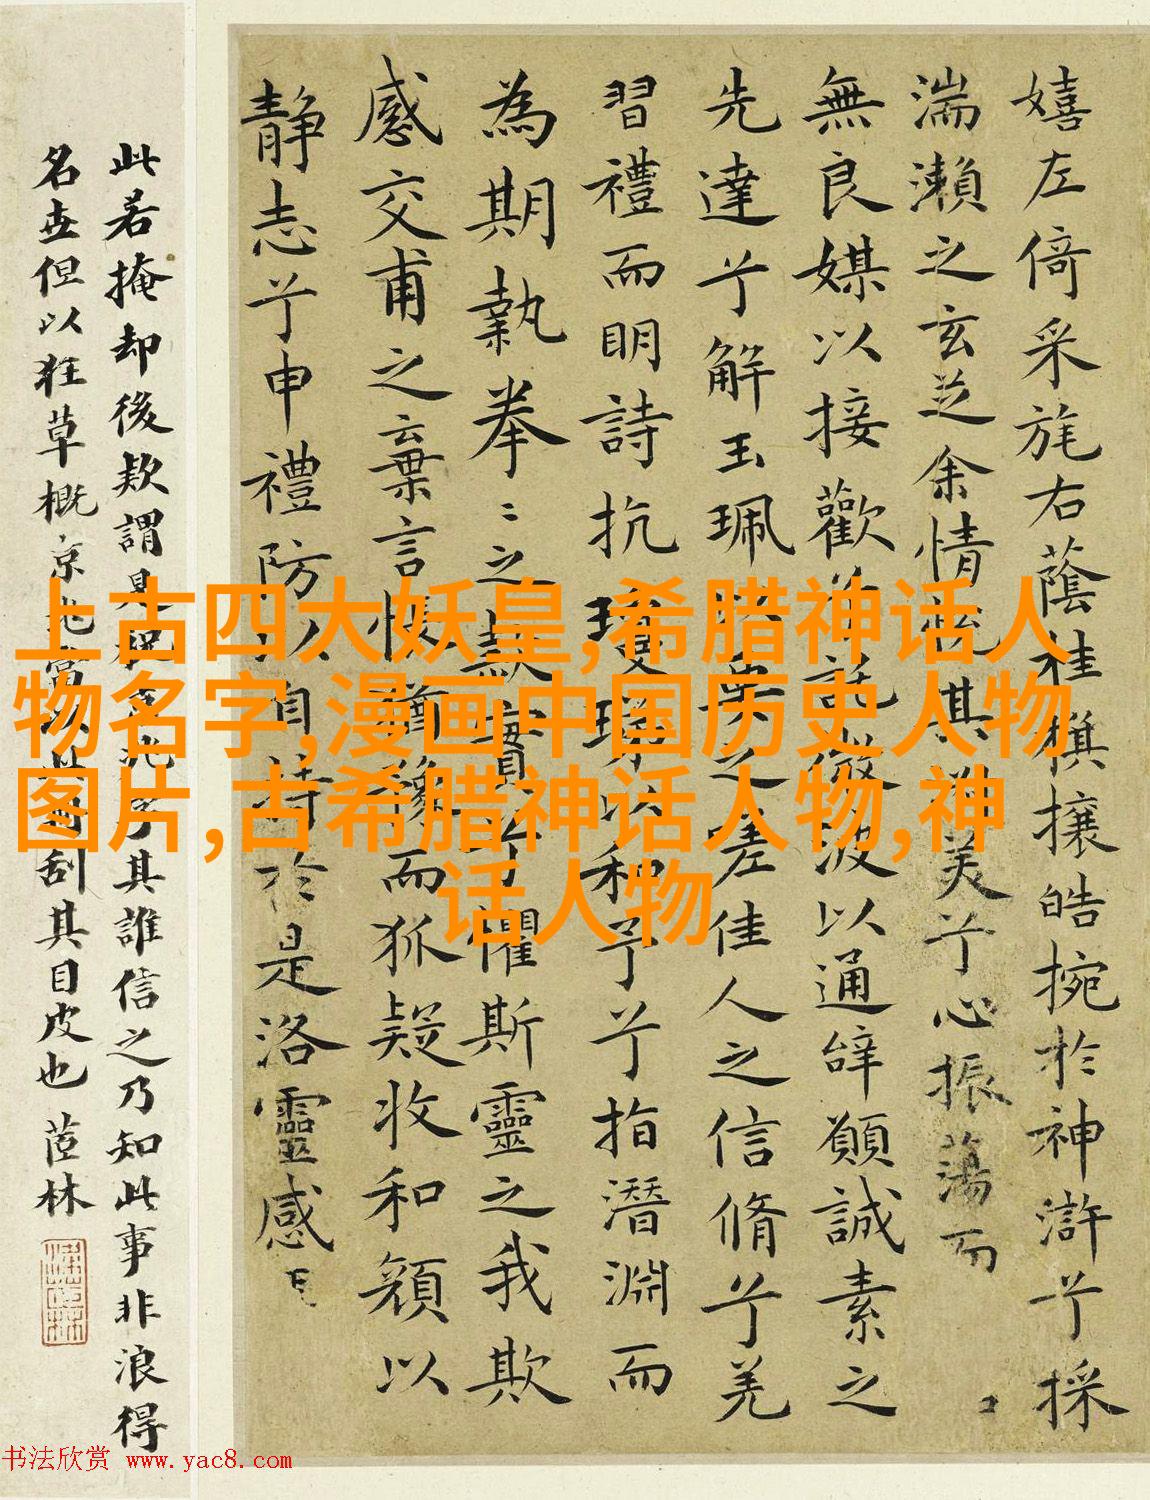 嬉左倚采旄右蔭桂旗攘皓捥於神滸兮採
湍瀨之玄芝余情悅其淑美兮心振蕩而
無良媒以接歡兮託微波以通辭願誠素之
先達兮解玉珮以要之嗟佳人之信脩兮羌
習禮而明詩抗瓊珶以和予兮指潛淵而
為期執拳〻之款實兮懼斯靈之我欺
感交甫之棄言悵猶豫而狐疑收和顏以
靜志兮申禮防以自持於是洛靈感
此若掩却後款謂是祝京兆子其誰信之乃知此事非浪得
名世但以狂草概京兆當以此刮其目皮也 茝林
上古四大妖皇,希腊神话人
物名字,漫画中国历史人物
图片,古希腊神话人物,神
话人物
书法欣赏 www.yac8.com